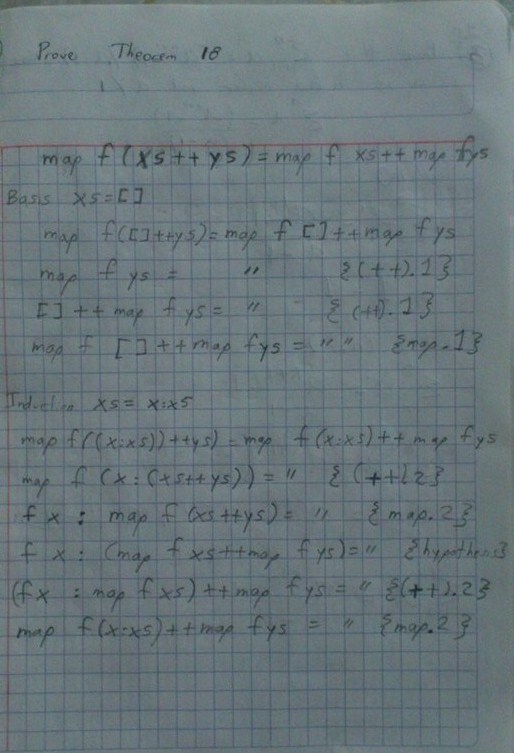 Prove Theorem 18
map f (xs ++ ys) = map f xs ++ map f ys
Basis xs = []
map f([] ++ ys) = map f [] ++ map f ys
map f ys = " {(++).1}
[] ++ map f ys = " {(++).1}
map f [] ++ map f ys = " " {map.1}
xs = x:xs
map f((x:xs)) ++ ys) = map f(x:xs) ++ map f ys
map f (x : (xs ++ ys)) = " {(++).2}
f x : map f (xs ++ ys) = " {map.2}
f x : (map f xs ++ map f ys) = " {hypothesis}
(f x : map f xs) ++ map f ys = " {(++).2}
map f(x:xs) ++ map f ys = " {map.2}